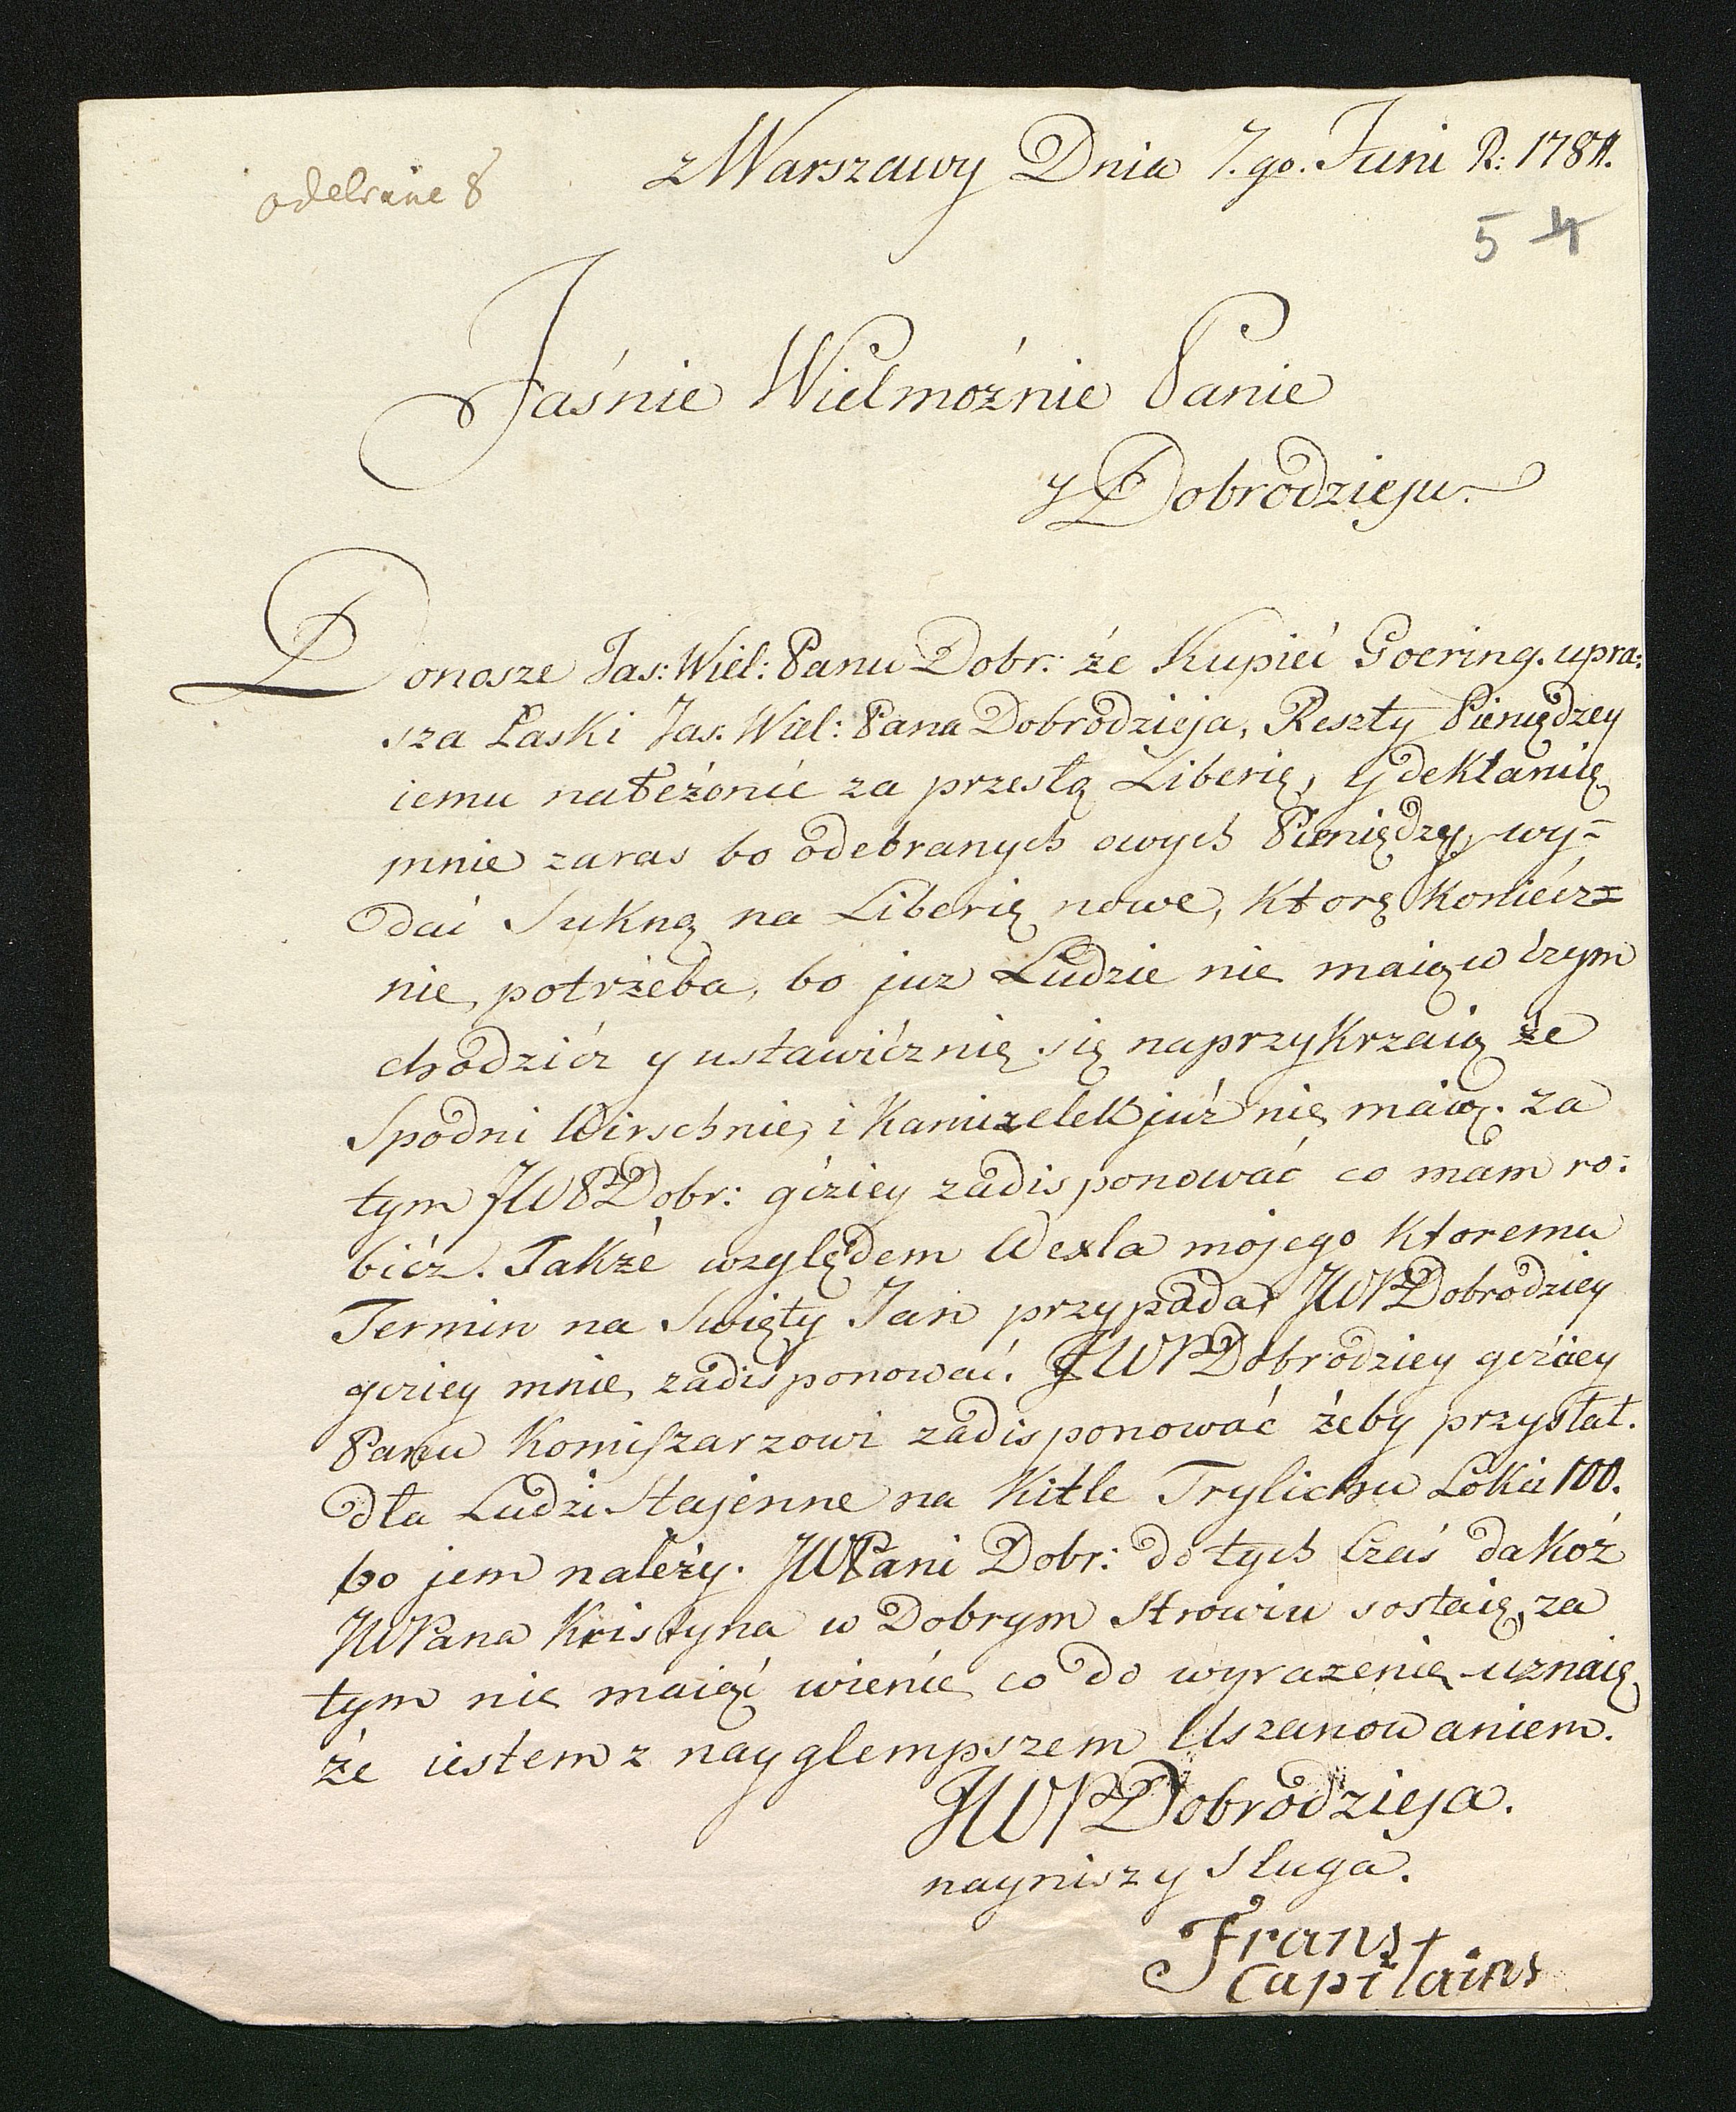 z Warszawy Dnia 7.go. Juni R: 1784.
odebrane 8
5 4
Jaśnie Wielmożnie Panie
y Dobrodzieju.
Donosze Jas: Wiel: Panu Dobr: że Kupieć Goering. upra:
sza Łaski Jas. Wiel: Pana Dobrodzieja, Reszty Pieniędzey
iemu należonie za przesłą Liberię, y deklaruię
mnie zaras bo odebranych owych Pieniędzy, wy=
dać Sukną na Liberię nowe, Ktorę Koniećz=
nie potrzeba, bo juz Ludzie nie maią w czym
chodzićz y ustawićznię się naprzykrzaią że
Spodni Wirschnie, i Kamizelek już nię maią. za
tym JWPDobr: gćziey zadisponować co mam ro:
bićz. Także względem Wexla mojego Ktoremu
Termin na Swięty Jan przypada, JWPDobrodziey
gcziey mnie zadisponować. JWPDobrodziey gcziey
Panu Komiszarzowi zadisponować żeby przysłał.
dla Ludzi Stajenne na Kitle Trylichu Łokci 100.
bo jem należy. JWPani Dobr: do tych Czas dakoż
JWPana Kristyna w Dobrym Strowiu sostaię, za
tym nie maiąć wienie co do wyrazenię uznaię
że iestem z nayglempszem Uszanowaniem.
JWPDobrodzieja.
nayniszy Sługa.
Frans
Capitains